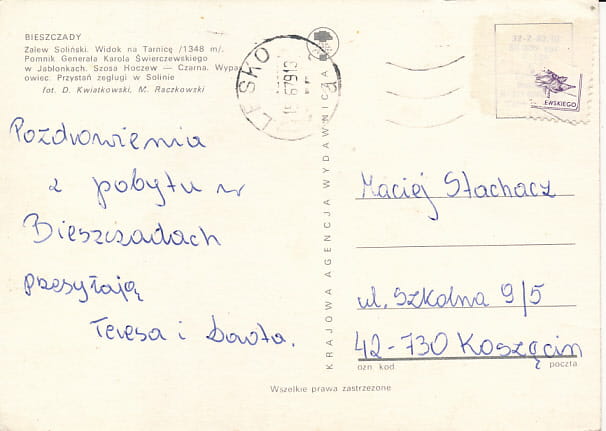 BIESZCZADY
Zalew Soliński. Widok na Tarnicę /1348 m/.
Pomnik Generała Karola Świerczewskiego
w Jabłonkach. Szosa Hoczew — Czarna. Wypa
owiec. Przystań żeglugi w Solinie
fot. D. Kwiatkowski, M. Raczkowski
Pozdrowienia
z pobytu w
Bieszczadach
przesyłają
Teresa i
LESKO
KRAJOWA AGENCJA WYDAWNICZA
EWSKIEGO
Maciej Stachacz
ul. Szkolna 9/5
42-730 Koszęcin
ozn. kod
poczta
Wszelkie prawa zastrzeżone